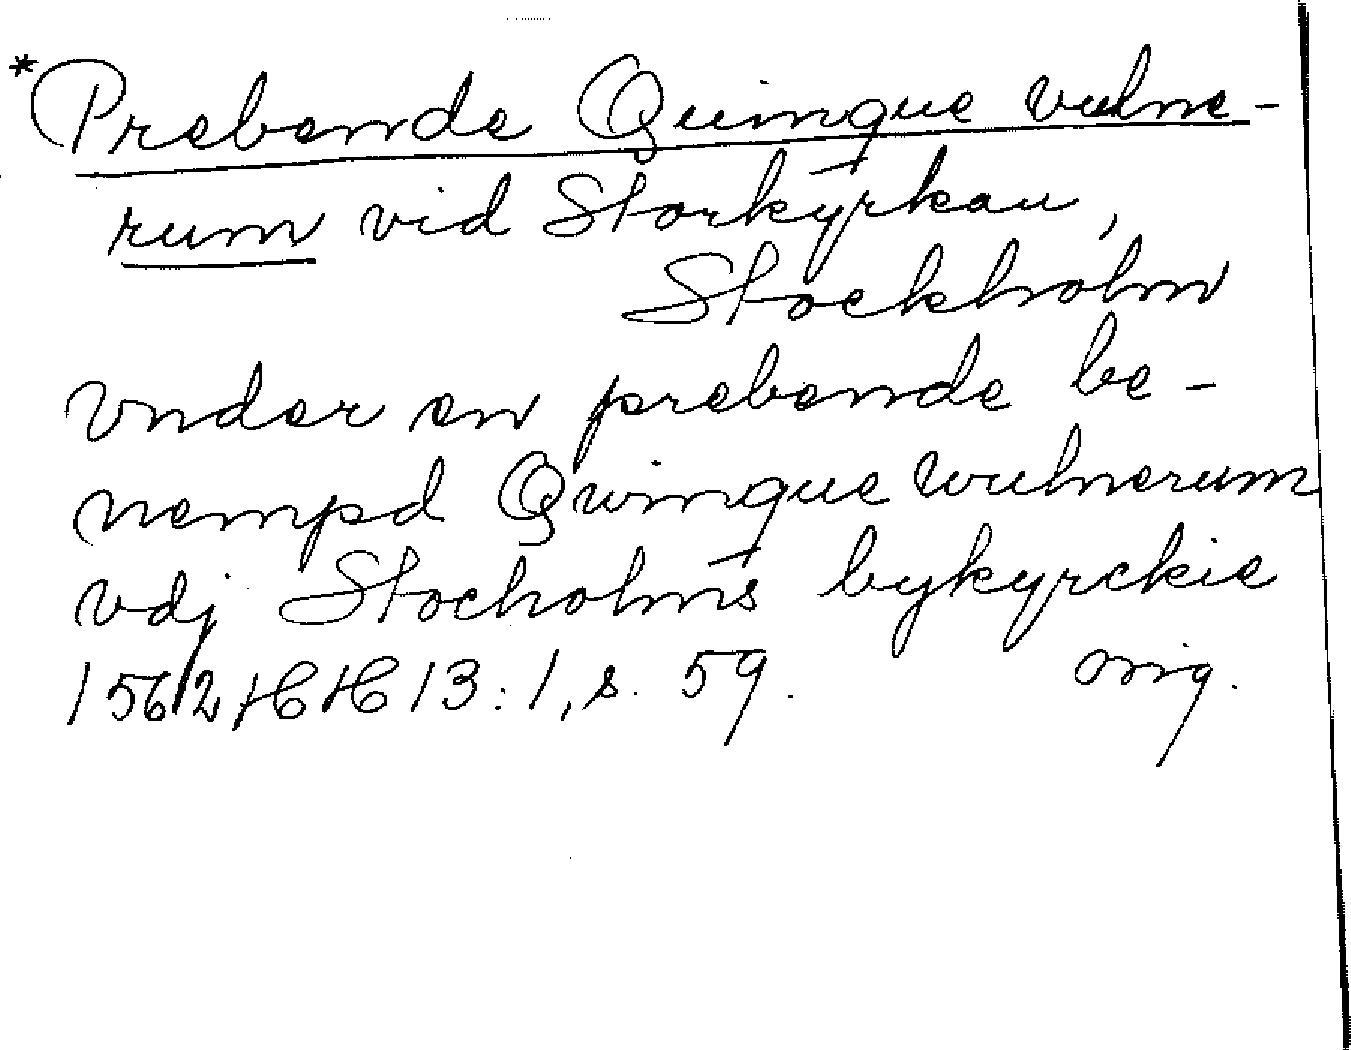 *Prebende Quinque vulne-
rum vid Storkyrkan,
Stockholm
vnder en prebende be-
nempd Quinque wulnerum
vdj Stocholms bykyrckie
1562 HH 13:1, s. 59. orig.